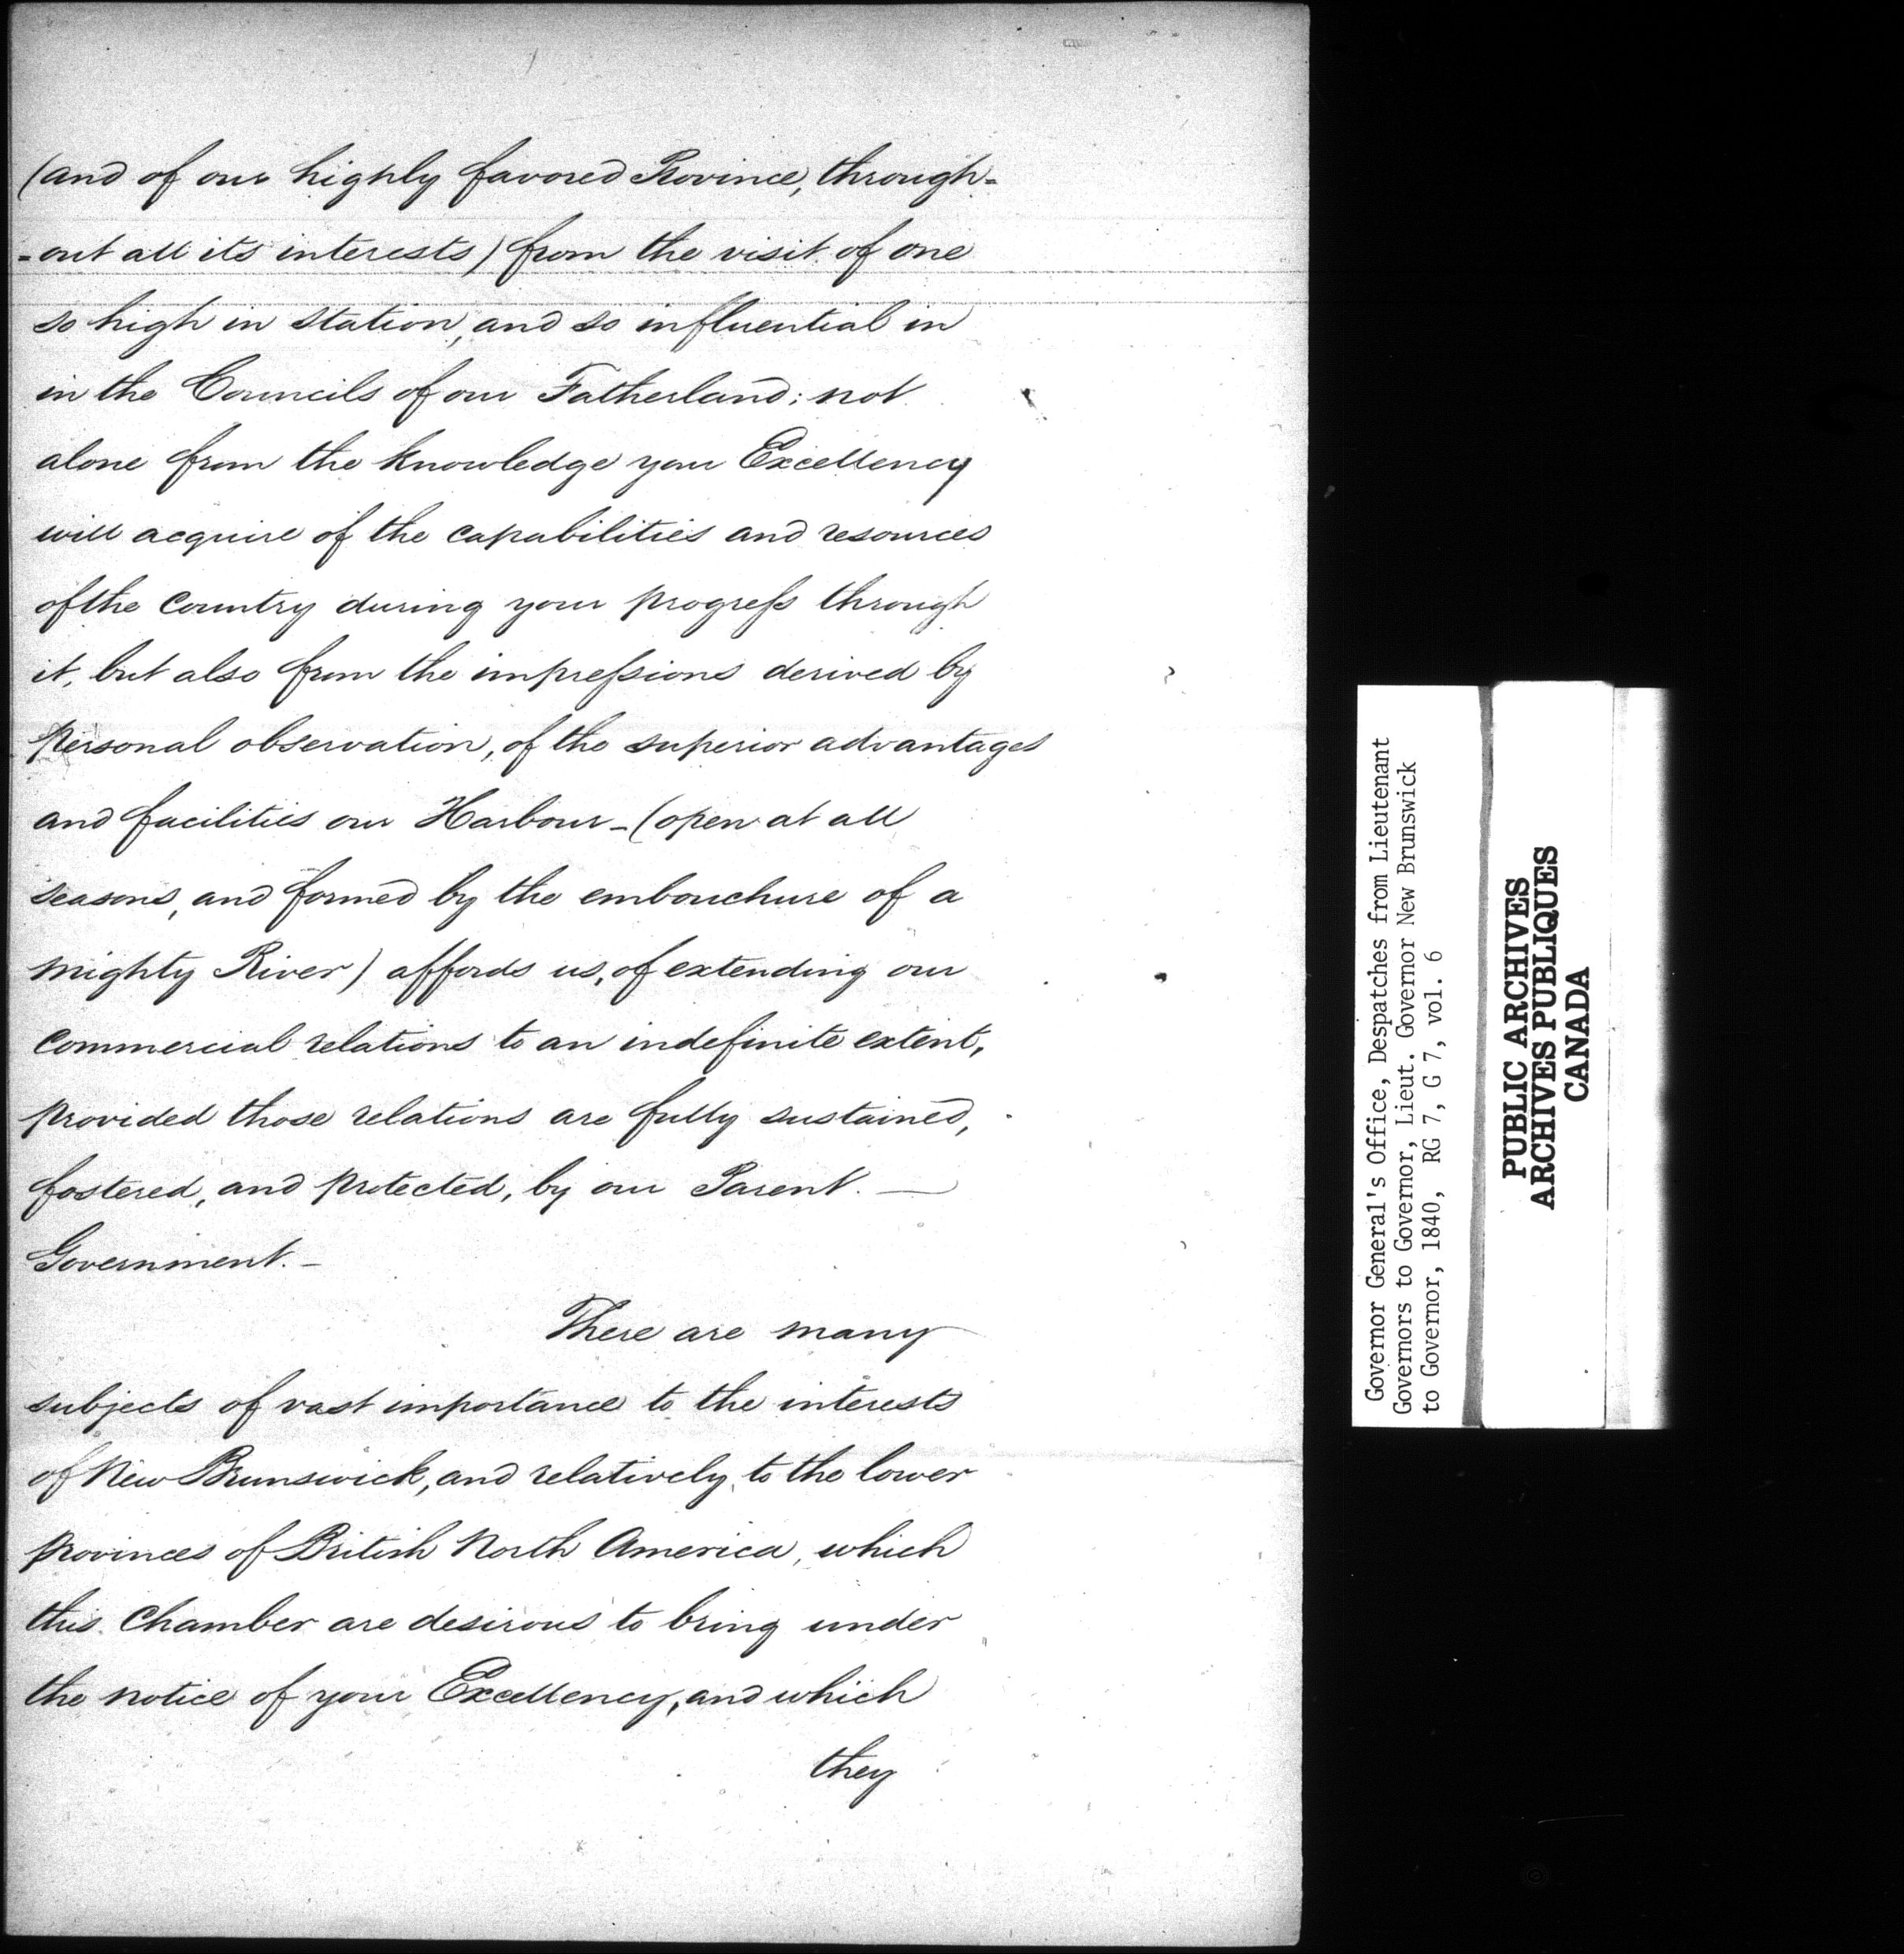 (and of our highly favored Province, through-
-out all its interests) from the visit of one
so high in station, and so influential in
in the Councils of our Fatherland; not
alone from the knowledge your Excellency
will acquire of the capabilities and resources
of the Country during your progress through
it, but also from the impressions derived by
personal observation, of the superior advantages
and facilities our Harbour - (open at all
seasons, and formed by the embouchure of a
mighty River) affords us, of extending our
commercial relations to an indefinite extent,
provided those relations are fully sustained,
fostered, and protected, by our Parent. —
Government. -
There are many
subjects of vast importance to the interests
of New Brunswick, and relatively, to the lower
provinces of British North America, which
this Chamber are desirous to bring under
the notice of your Excellency, and which
they
Governor General's Office, Despatches from Lieutenant
Governors to Governor, Lieut. Governor New Brunswick
to Governor, 1840, RG 7, G 7, vol. 6
PUBLIC ARCHIVES
ARCHIVES PUBLIQUES
CANADA